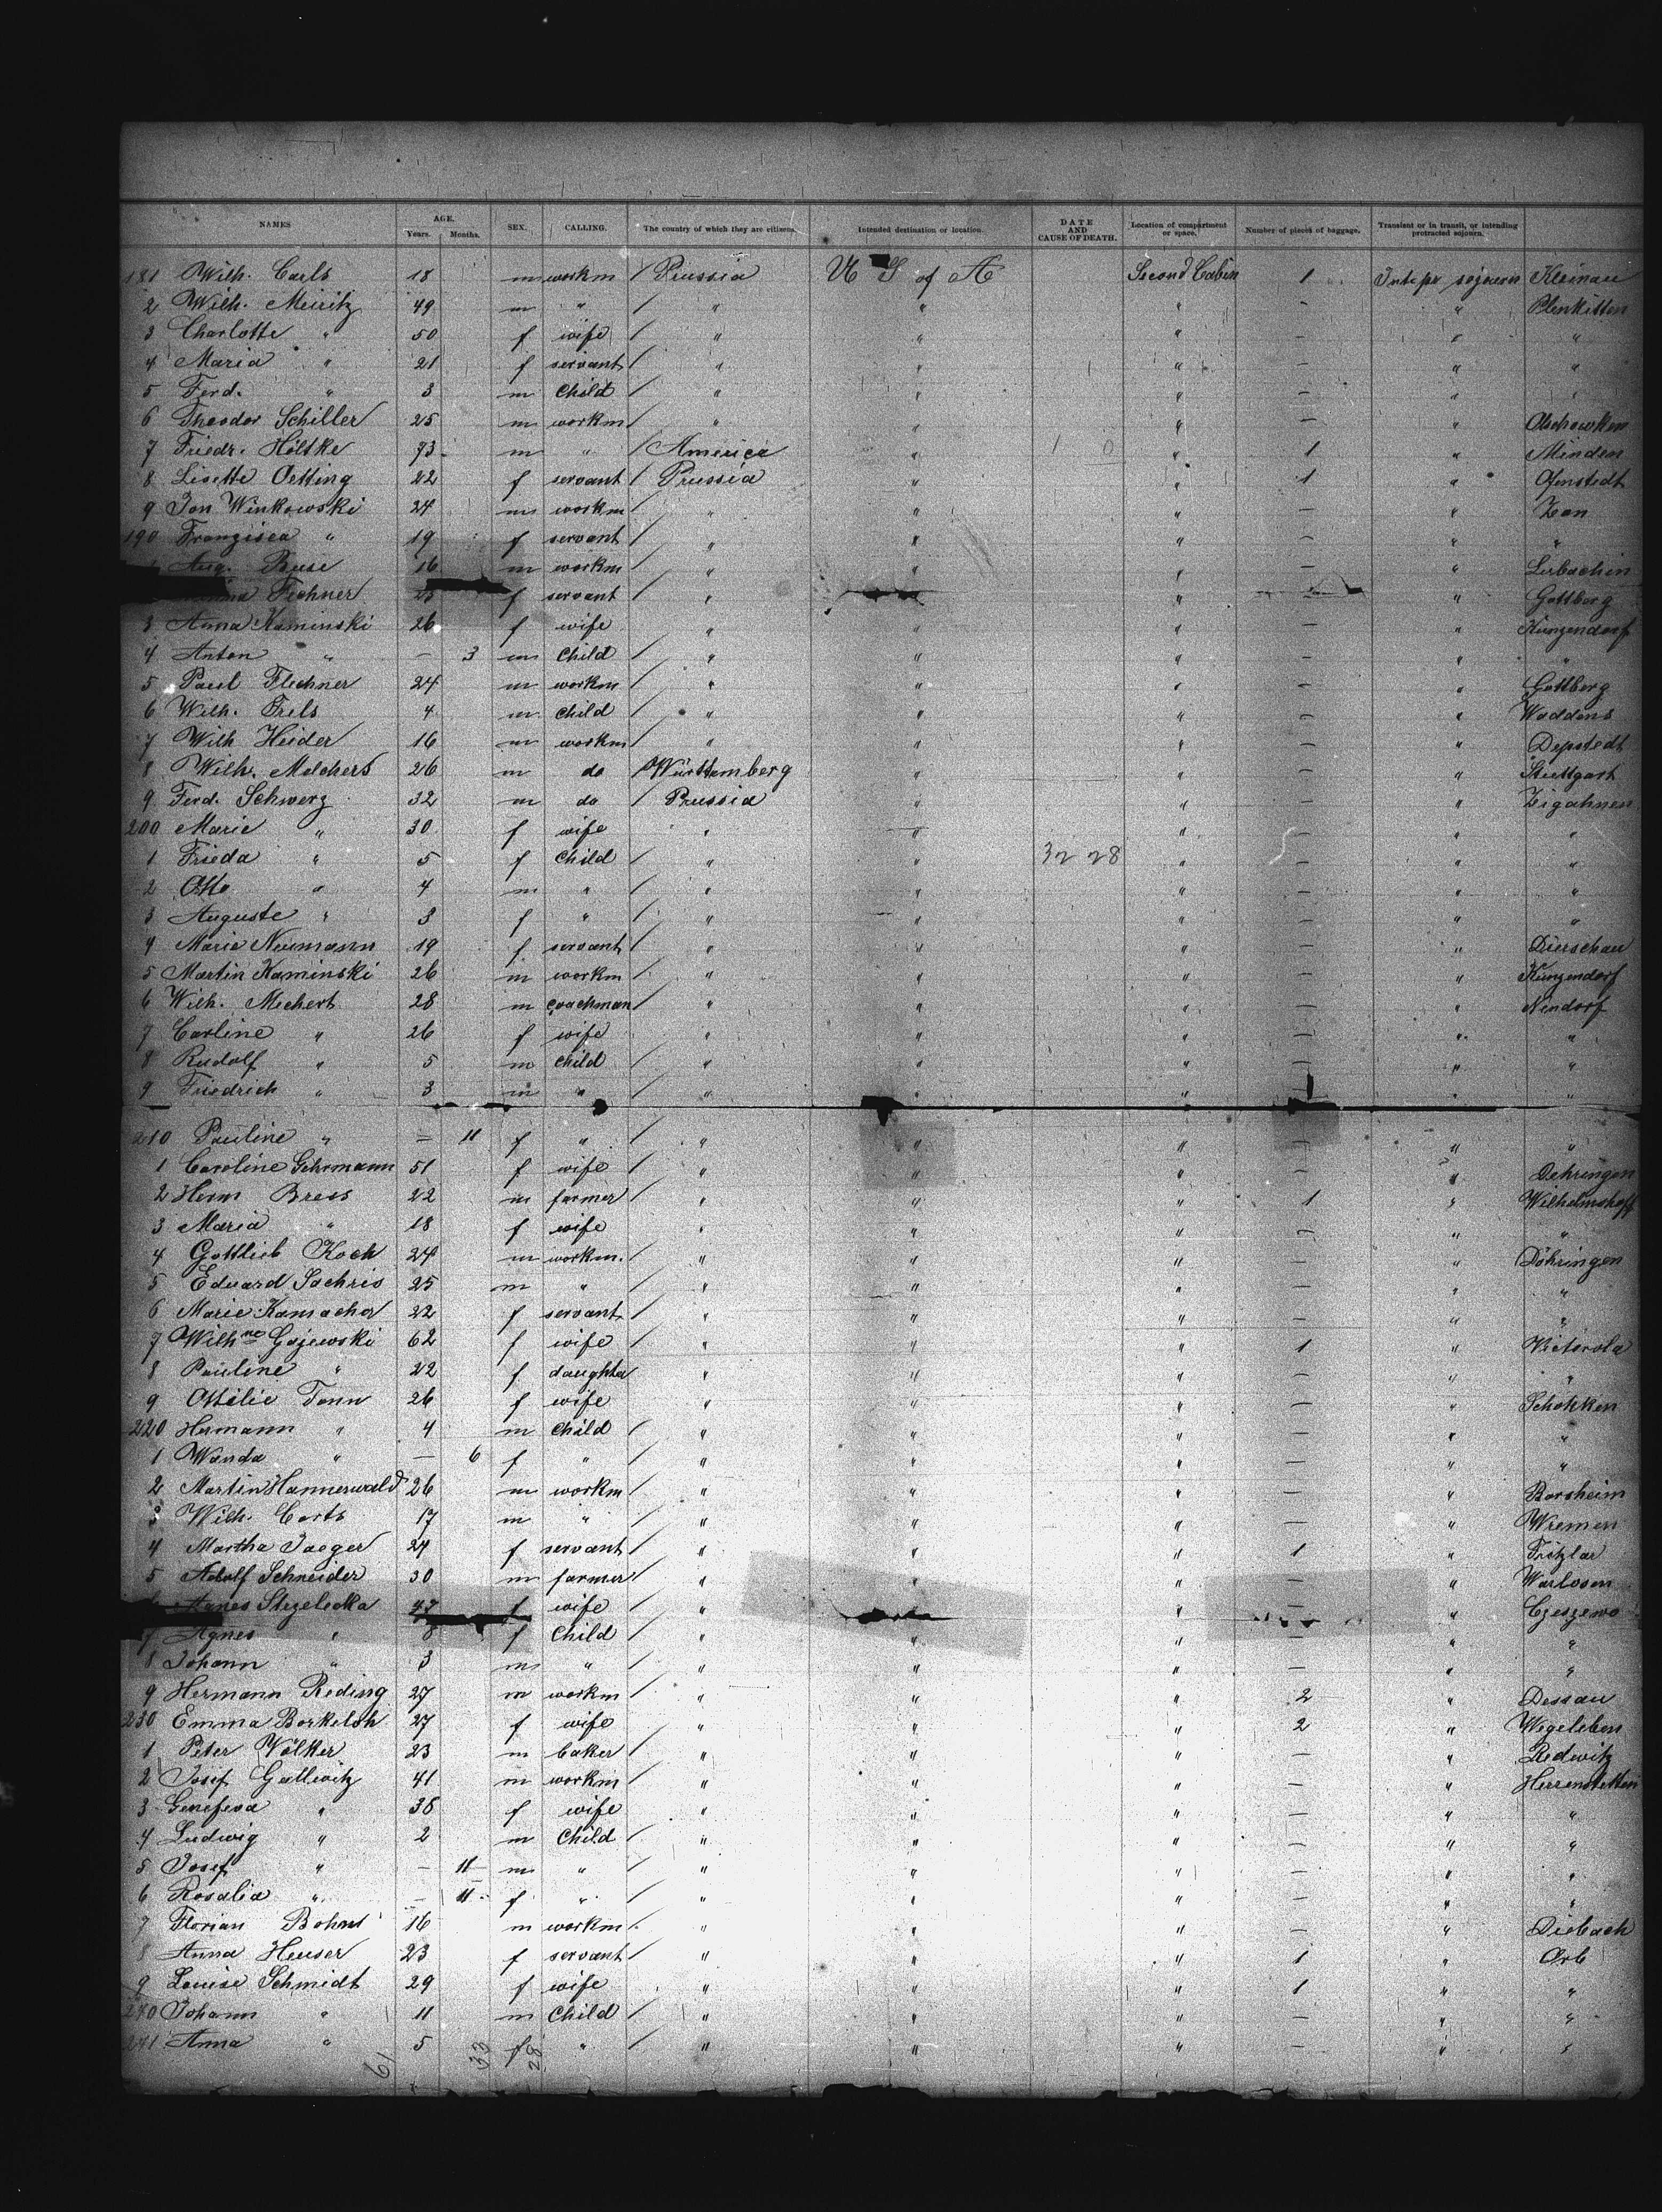 NAMES AGE. Years. Months. SEX. CALLING. The country of which they are citizens. Intended destination or location. DATE AND CAUSE OF DEATH. Location of compartment or space. Number of pieces of baggage. Transient or in transit, or intending protracted sojourn.
181 Wilh. Carls 18 m workm / Prussia U S of A Second Cabin 1 sojourn Kleinau
2 Wilh. Meiritz 49 m " / " " " — "
3 Charlotte " 50 f wife / " " " — " "
4 Maria " 21 f servant / " " " — " "
5 Ferd. " 3 m Child / " " " — " "
6 Theodor Schiller 25 m workm / " " " — "
7 Friedr. Höltke 73 m " / America " " 1 " Minden
8 Lisette Oetting 22 f servant / Prussia " " 1 "
9 Jan Winkowski 24 m workm / " " " — " Zan
190 Franzisca " 19 f servant / " " " — " "
Aug. Buse 16 m workm / " " " — "
Fechner 25 f servant / " " — " Gottberg
3 Anna Kaminski 26 f wife / " " " — " Kunzendorf
4 Anton " — 3 m Child / " " " — " "
5 Paul Flechner 24 m workm / " " " — " Gottberg
6 Wilh. Frels 4 m Child / " " " — " Waddens
7 Wilh Heider 16 m workm / " " " — " Depstedt
8 Wilh. Melchers 26 m do / Württemberg " " — " Stuttgart
9 Ferd. Schwerz 32 m do / Prussia " " — " Zigahnen
200 Marie " 30 f wife / " " " — " "
1 Frieda " 5 f Child / " " 32 28 " — " "
2 Otto " 4 m " / " " " — " "
3 Auguste " 3 f " / " " " — " "
4 Marie Neumann 19 f servant / " " " — " Dirschau
5 Martin Kaminski 26 m workm / " " " — " Kunzendorf
6 Wilh. Mechert 28 m coachman / " " " — " Nindorf
7 Carline " 26 f wife / " " " — " "
8 Rudolf " 5 m Child / " " " — " "
9 Friedrich " 3 m " / " " " " "
210 Pauline " — 11 f " / " " " — " "
1 Caroline Gehrmann 51 f wife / " " " — " Dehringen
2 Herm Bress 22 m farmer / " " " 1 " Wilhelmshoff
3 Maria " 18 f wife / " " " — " "
4 Gottlieb Koch 24 m workm. / " " " — " Döhringen
5 Eduard Sachris 25 m " / " " " — " "
6 Marie Kamacher 22 f servant / " " " — " "
7 Wilhne Gajewski 62 f wife / " " " 1 "
8 Pauline " 22 f daughter " " " — " "
9 Ottilie Tonn 26 f wife / " " " — " Schokken
220 Hermann " 4 m Child / " " " — " "
1 Wanda " — 6 f " / " " " — " "
2 Martin Hannerwald 26 m workm / " " " — " Borsheim
3 Wilh. Corts 17 m " / " " " — " Wremen
4 Martha Jaeger 24 f servant / " " " 1 " Fritzlar
5 Adolf Schneider 30 m farmer / " " " — " Warlosen
Agnes Strzelecka 47 f wife / " " " Czeszewo
7 Agnes " 8 f Child / " " " — " "
8 Johann " 3 m " / " " " — " "
9 Hermann Reding 27 m workm / " " " 2 " Dessau
230 Emma Borkeloh 27 f wife / " " " 2 " Wegeleben
1 Peter Völker 23 m baker / " " " — " Redwitz
2 Josef Gallwitz 41 m workm / " " " — " Herrenstetten
3 Genefeva " 38 f wife / " " " — " "
4 Ludwig " 2 m Child / " " " — " "
5 Josef " — 11 m " / " " " — " "
6 Rosalia " — 11 f " / " " " — " "
7 Florian Bohm 16 m workm / " " " — " Diebach
8 Anna Heuser 23 f servant / " " " 1 " Orb
9 Louise Schmidt 29 f wife / " " " 1 " "
240 Johann " 11 m Child / " " " — " "
241 Anna " 5 f " / " " " — " "
61 33 28